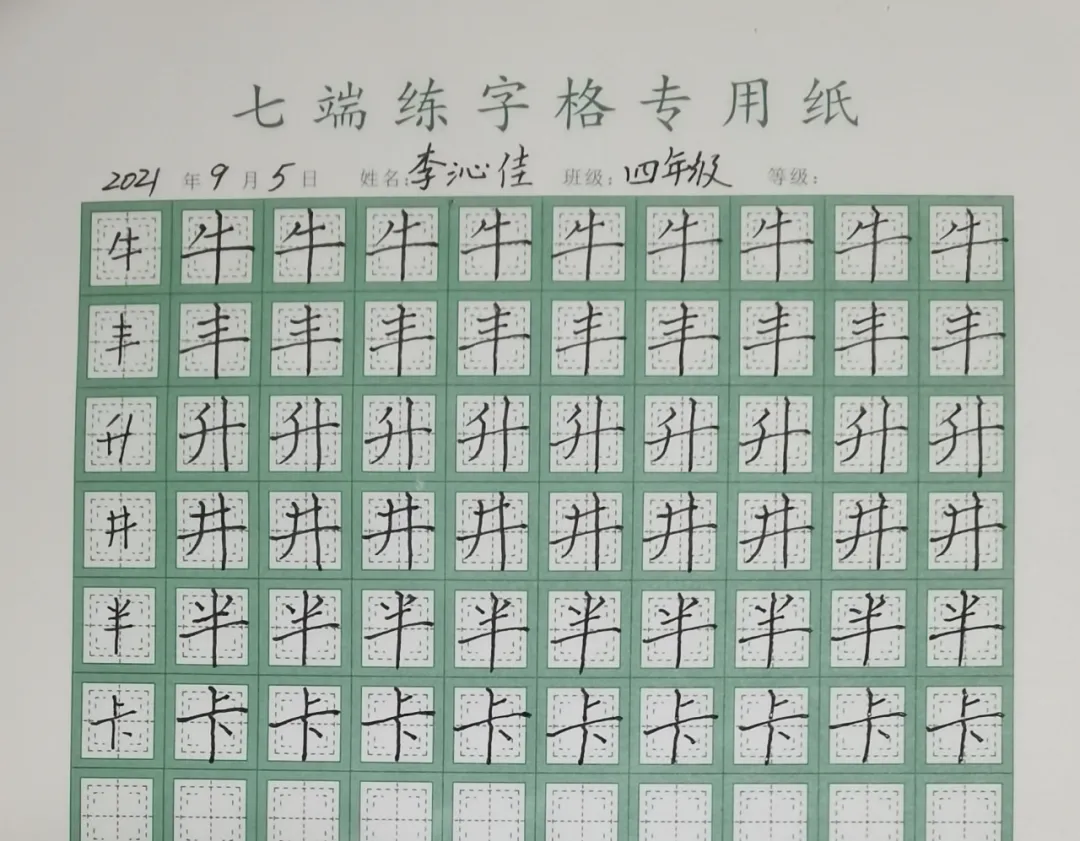 七端练字格专用纸
2021年9月5日 姓名:李沁佳 班级:四年级 等级:
牛牛牛牛牛牛牛牛牛牛
丰丰丰丰丰丰丰丰丰丰
升升升升升升升升升升
井井井井井井井井井井
半半半半半半半半半半
卡卡卡卡卡卡卡卡卡卡